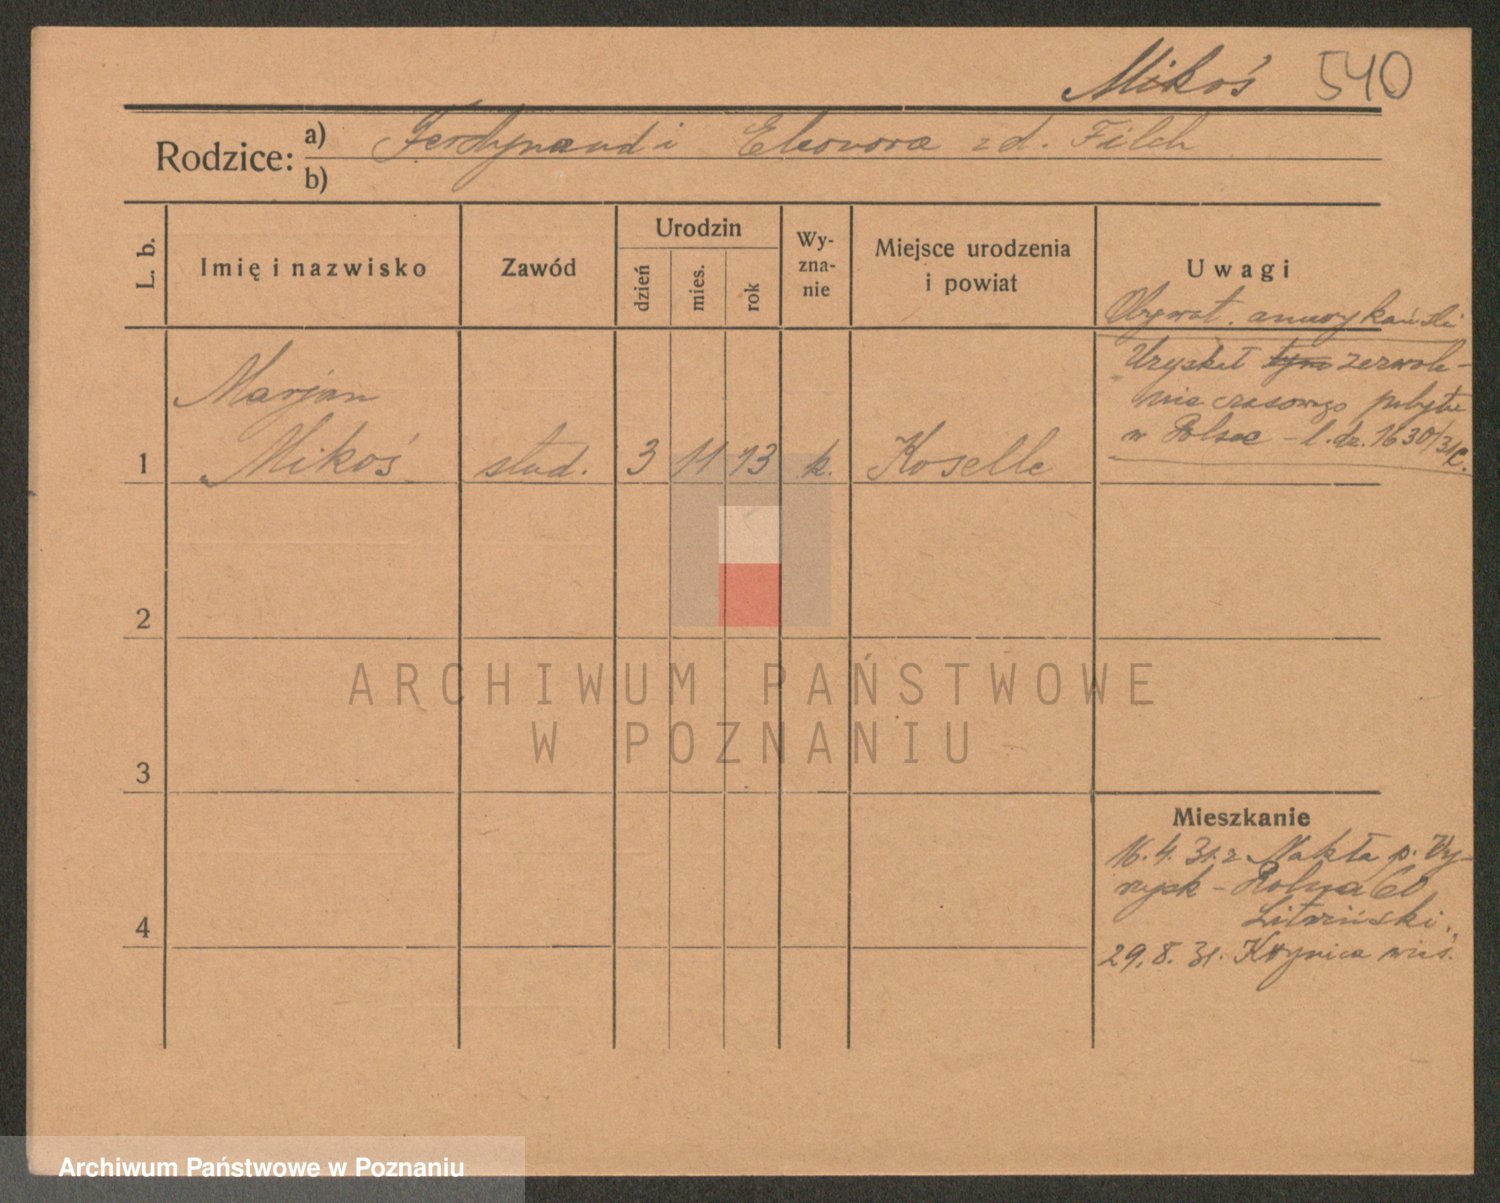 Mikoś 540
Rodzice: a) Ferdynand i Eleonora zd. Filch
b)
L. b.
Imię i nazwisko
Zawód
Urodzin
dzień
mies.
rok
Wy-
zna-
nie
Miejsce urodzenia
i powiat
Uwagi
Obywat. amerykański
Uzyskał tym zezwole-
nie czasowego pobytu
w Polsce - l. dz. 1630/31
Marjan
1 Mikoś stud. 3 11 13 k. Koselle
2
3
4
ARCHIWUM PAŃSTWOWE
W POZNANIU
Mieszkanie
16.4.31. z Nakła p. Wy-
rzysk - Rolna
Litwiński.
29.8.31. Krynica wieś.
Archiwum Państwowe w Poznaniu